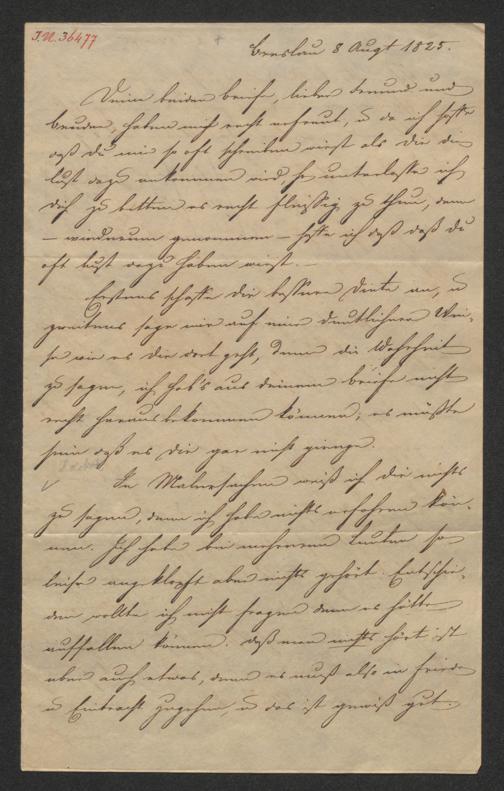 I.N. 36477
Breslau 8 Augt 1825.
Deine beiden briefe, lieber Freund und
bruder, haben mich recht erfreut, u da ich hoffe
daß du mir so oft schreiben wirst als dir die
lust dazu ankommen wird so unterlasse ich
dich zu bitten es recht fleissig zu thun, denn
– wiederum genommen – hoffe ich daß daß du
oft lust dazu haben wirst. –
Erstens schaffe dir bessere Dinte an, u
zweitens sage mir auf eine deutlichere Wei-
se wie es dir dort geht, denn die Wahrheit
zu sagen, ich hab's aus deinem briefe nicht
recht herausbekommen können; es müßte
sein daß es dir gar nicht gienge.
In Malersachen weiß ich dir nichts
zu sagen, denn ich habe nichts erfahren kön-
nen. Ich habe bei mehreren Leuten so
leise angeklopft aber nichts gehört. Entschie-
den wollte ich nicht fragen denn es hätte
auffallen können. Daß man nichts hört ist
aber auch etwas, denn es muß also in Friede
u Eintracht zugehen, u das ist gewiß gut.